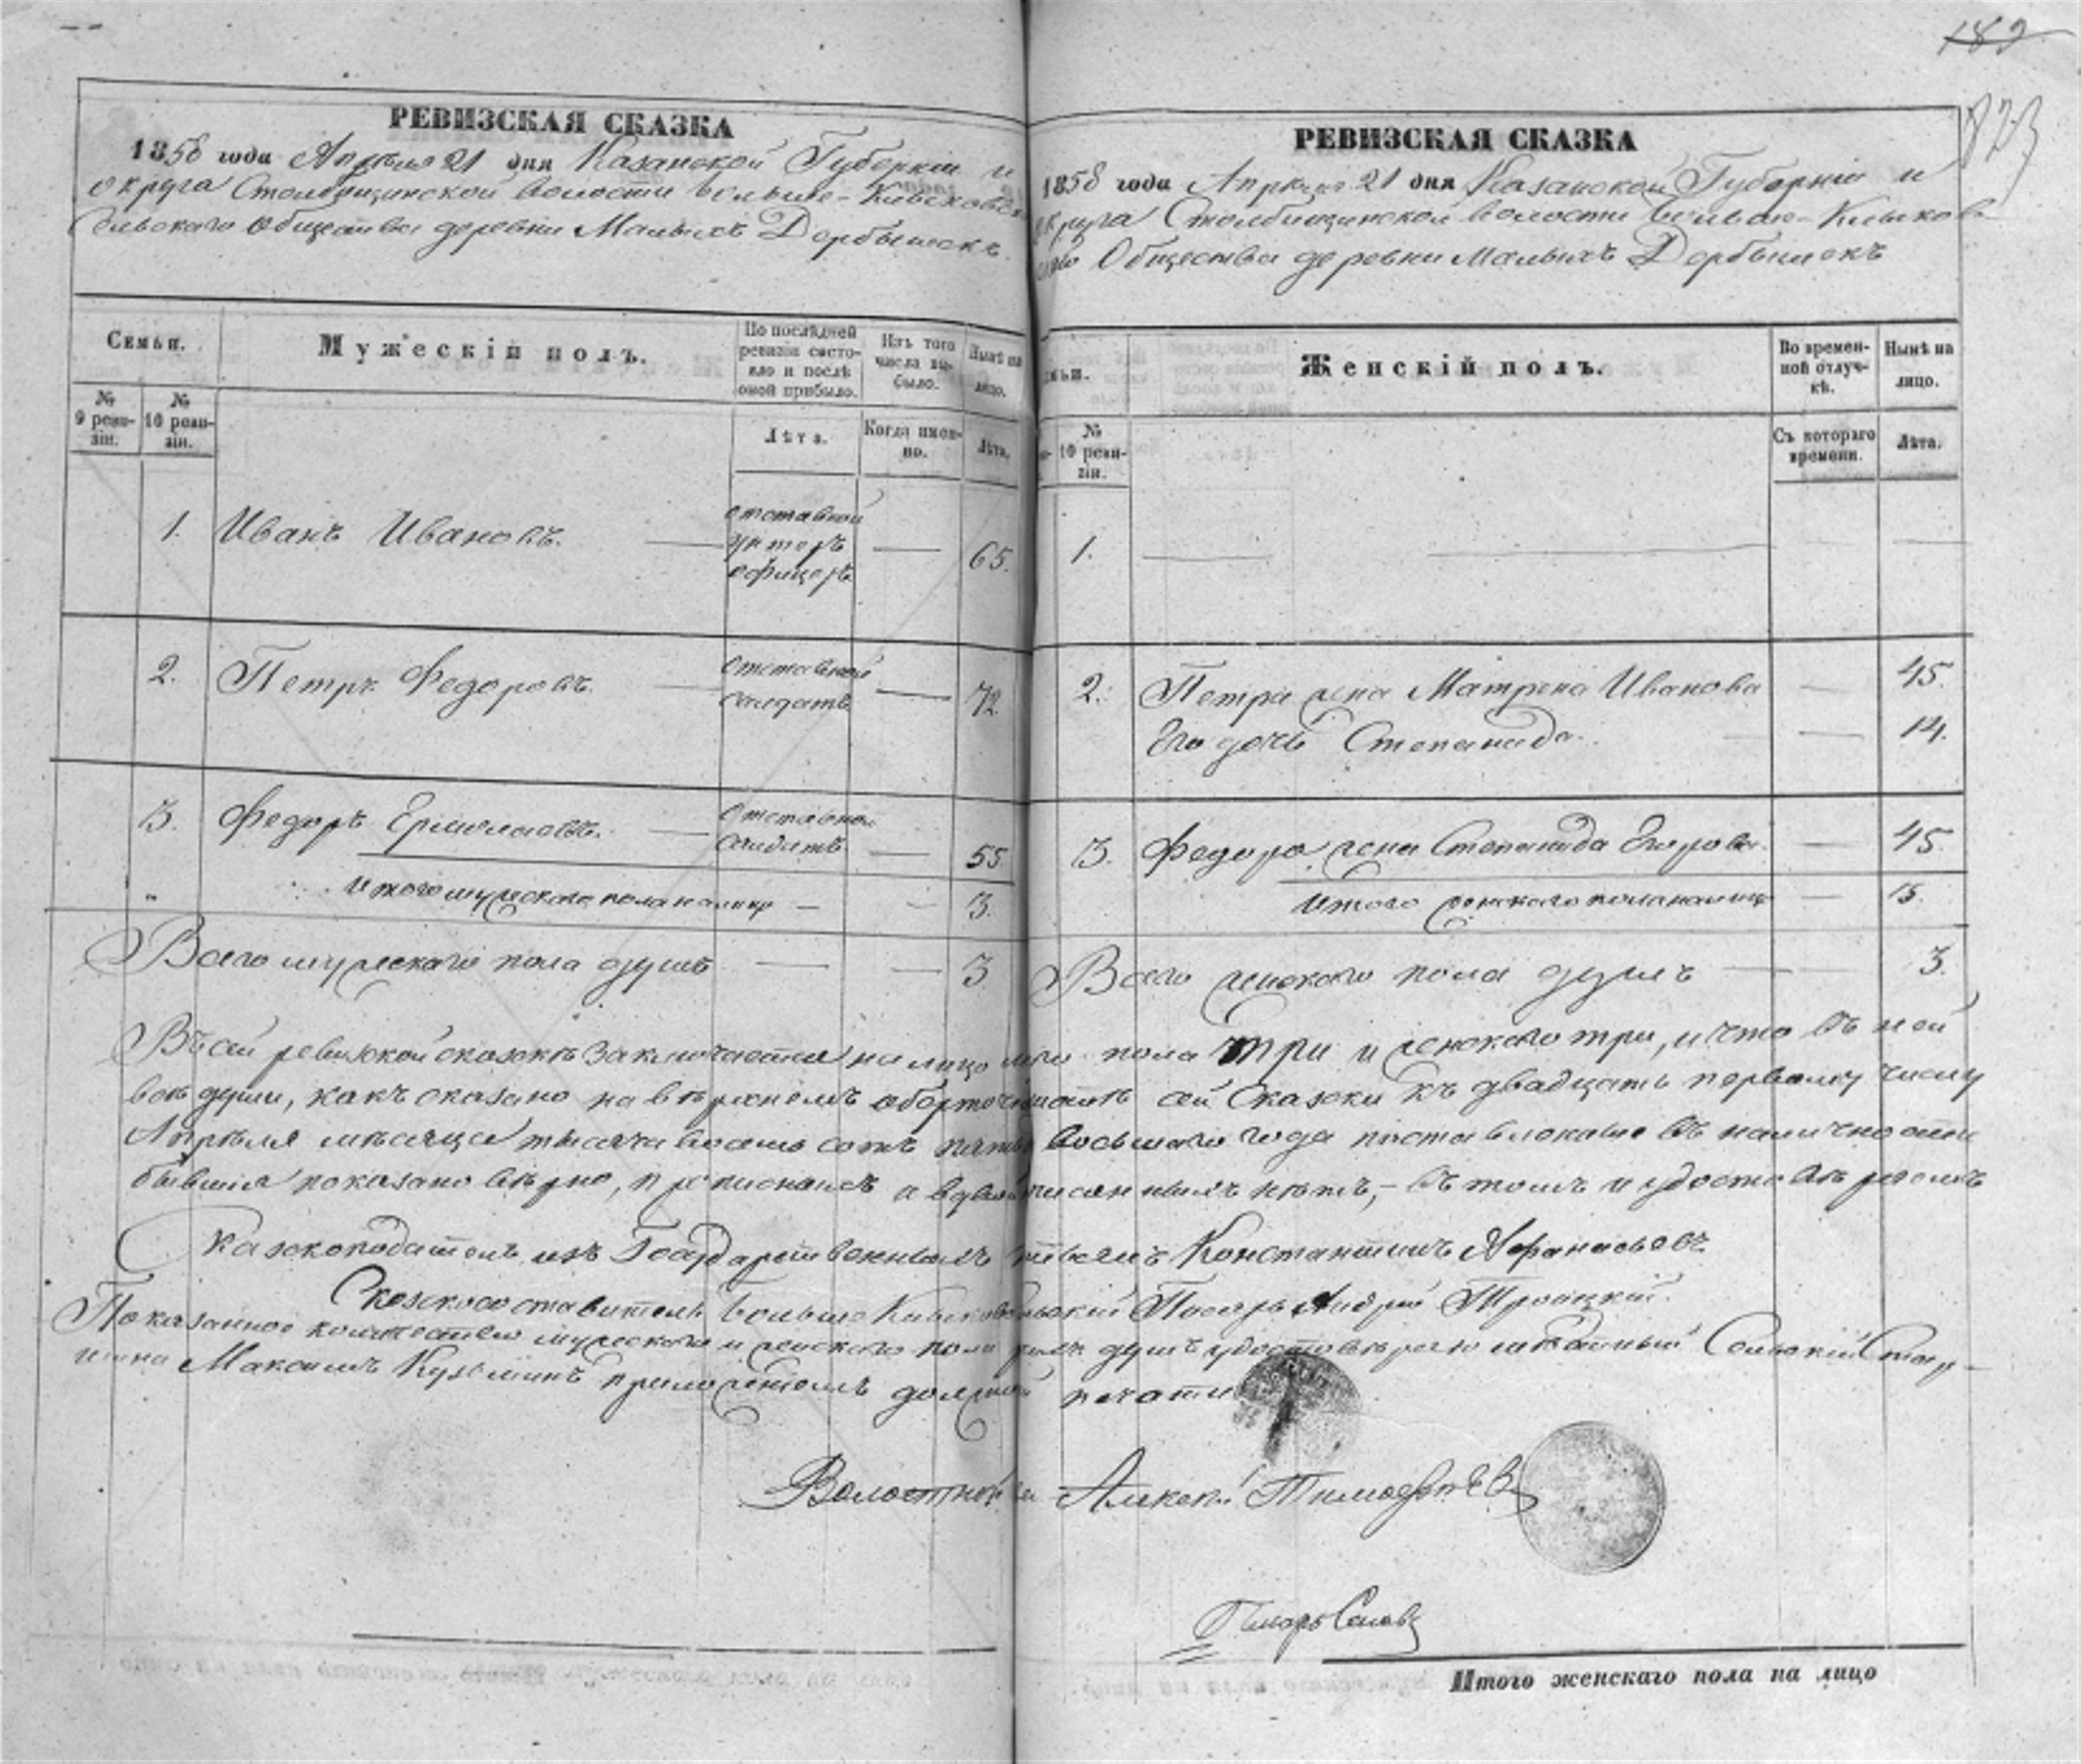 189
823
РЕВИЗСКАЯ СКАЗКА
1858 года Апрѣля 21 дня Казанской Губерніи и
округа Столбищинской волости Больше-Клыковскаго
Сельскаго Общества деревни Малыхъ Дербышекъ.
Семьи.
Мужескій полъ.
По послѣдней ревизіи состояло и послѣ оной прибыло.
Изъ того числа выбыло.
Нынѣ на лицо.
№ 9 ревизіи.
№ 10 ревизіи.
Лѣта.
Когда именно.
Лѣта.
1. Иванъ Ивановъ. — отставной унтеръ офицеръ — 65.
2. Петръ Федоровъ. — отставной солдатъ — 72.
3. Федоръ Ермолаевъ. — отставной солдатъ — 55
" Итого мужескаго пола на лицо — — 3.
Всего мужескаго пола душъ — — 3
РЕВИЗСКАЯ СКАЗКА
1858 года Апрѣля 21 дня Казанской Губерніи и
округа Столбищинской волости Больше-Клыков
Общества деревни Малыхъ Дербышекъ
Женскій полъ.
Во временной отлучкѣ.
Нынѣ на лицо.
№ 10 ревизіи.
Съ котораго времени.
Лѣта.
1. — — — —
2. Петра жена Матрена Иванова — 45.
Его дочь Степанида. — 14.
3. Федора жена Степанида Егорова. — 45.
Итого женскаго пола на лицо — 3.
Всего женскаго пола душъ — 3.
Въ сей ревизской сказкѣ заключается на лицо пола три и женскаго три, и что въ ней
всѣ души, какъ сказано на верхнемъ оборотѣ сей сказки къ двадцать первому числу
Апрѣля мѣсяца тысяча восемь сотъ восьмаго года въ наличности
бывшія показано вѣрно, прописныхъ а писанныхъ нѣтъ, — въ томъ и удостовѣряемъ
Сказкоподатель изъ Государственныхъ Константинъ Афанасьевъ
Сказкосоставитель Больше Клыковскій Писарь Андрей Троицкій.
Показанное количество мужескаго и женскаго пола душъ удостовѣряю Сельскій Стар-
шина Максимъ Кузьминъ приложеніемъ должной печати
Волостной Алексѣй Тимофеевъ
Писарь
Итого женскаго пола на лицо